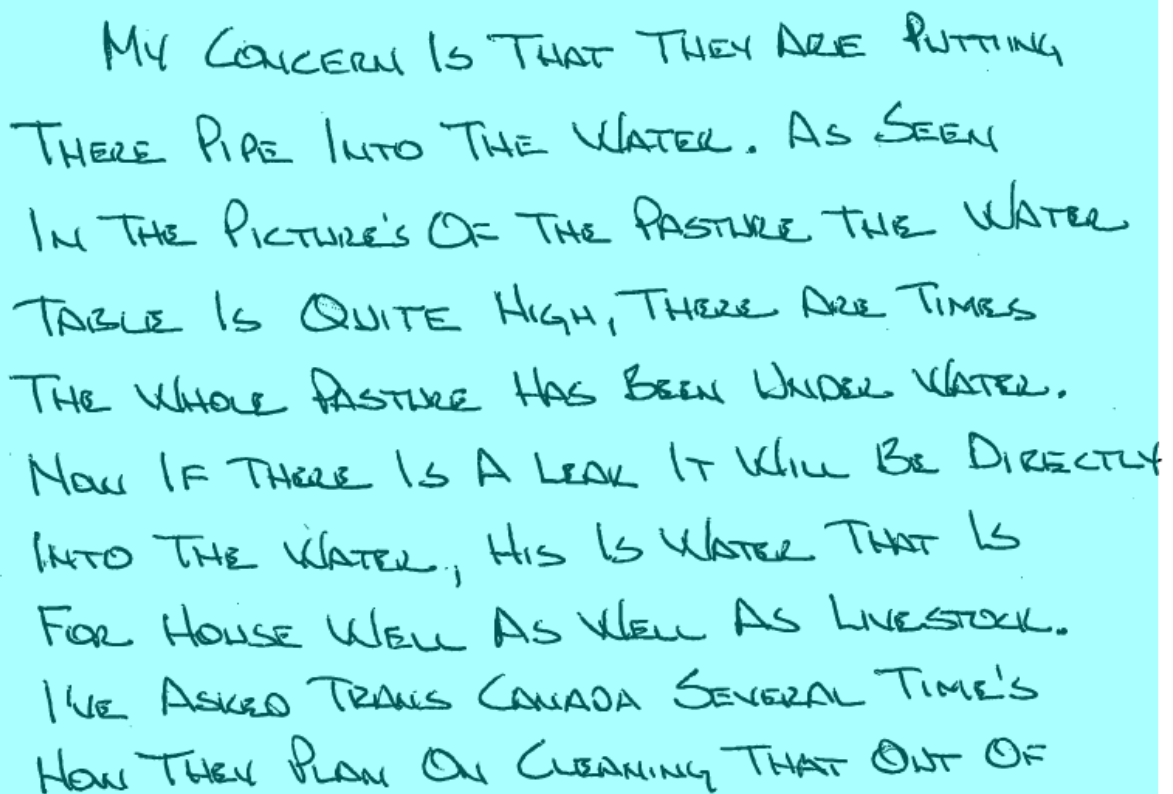 My Concern Is That They Are Putting
There Pipe Into The Water. As Seen
In The Picture's Of The Pasture The Water
Table Is Quite High, There Are Times
The Whole Pasture Has Been Under Water.
Now If There Is A Leak It Will Be Directly
Into The Water, His Is Water That Is
For House Well As Well As Livestock.
I've Asked Trans Canada Several Time's
How They Plan On Cleaning That Out Of